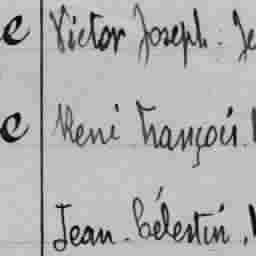 e Victor Joseph. Je
e René François.
Jean. Célestin.